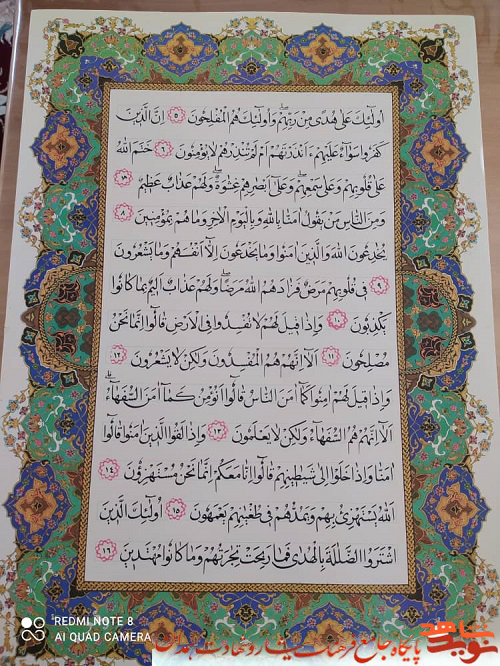 اُولٰٓئِكَ عَلٰى هُدًى مِنْ رَبِّهِمْ وَاُولٰٓئِكَ هُمُ الْمُفْلِحُونَ ۵ اِنَّ الَّذِينَ
كَفَرُوا سَوَآءٌ عَلَيْهِمْ ءَاَنْذَرْتَهُمْ اَمْ لَمْ تُنْذِرْهُمْ لَا يُؤْمِنُونَ ۶ خَتَمَ اللهُ
عَلٰى قُلُوبِهِمْ وَعَلٰى سَمْعِهِمْ وَعَلٰٓى اَبْصٰرِهِمْ غِشٰوَةٌ وَلَهُمْ عَذَابٌ عَظِيمٌ
وَمِنَ النَّاسِ مَنْ يَقُولُ اٰمَنَّا بِاللهِ وَبِالْيَوْمِ الْاٰخِرِ وَمَا هُمْ بِمُؤْمِنِينَ ۸
يُخٰدِعُونَ اللهَ وَالَّذِينَ اٰمَنُوا وَمَا يَخْدَعُونَ اِلَّآ اَنْفُسَهُمْ وَمَا يَشْعُرُونَ
۹ فِى قُلُوبِهِمْ مَرَضٌ فَزَادَهُمُ اللهُ مَرَضًا وَلَهُمْ عَذَابٌ اَلِيمٌ بِمَا كَانُوا
يَكْذِبُونَ وَاِذَا قِيلَ لَهُمْ لَا تُفْسِدُوا فِى الْاَرْضِ قَالُوٓا اِنَّمَا نَحْنُ
مُصْلِحُونَ ۱۱ اَلَآ اِنَّهُمْ هُمُ الْمُفْسِدُونَ وَلٰكِنْ لَا يَشْعُرُونَ ۱۲
وَاِذَا قِيلَ لَهُمْ اٰمِنُوا كَمَآ اٰمَنَ النَّاسُ قَالُوٓا اَنُؤْمِنُ كَمَآ اٰمَنَ السُّفَهَآءُ
اَلَآ اِنَّهُمْ هُمُ السُّفَهَآءُ وَلٰكِنْ لَا يَعْلَمُونَ ۱۳ وَاِذَا لَقُوا الَّذِينَ اٰمَنُوا قَالُوٓا
اٰمَنَّا وَاِذَا خَلَوْا اِلٰى شَيٰطِينِهِمْ قَالُوٓا اِنَّا مَعَكُمْ اِنَّمَا نَحْنُ مُسْتَهْزِءُونَ ۱۴
اَللهُ يَسْتَهْزِئُ بِهِمْ وَيَمُدُّهُمْ فِى طُغْيٰنِهِمْ يَعْمَهُونَ ۱۵ اُولٰٓئِكَ الَّذِينَ
اشْتَرَوُا الضَّلٰلَةَ بِالْهُدٰى فَمَا رَبِحَتْ تِجٰرَتُهُمْ وَمَا كَانُوا مُهْتَدِينَ ۱۶
REDMI NOTE 8
AI QUAD CAMERA
پایگاه جامع فرهنگ ایثار و شهادت